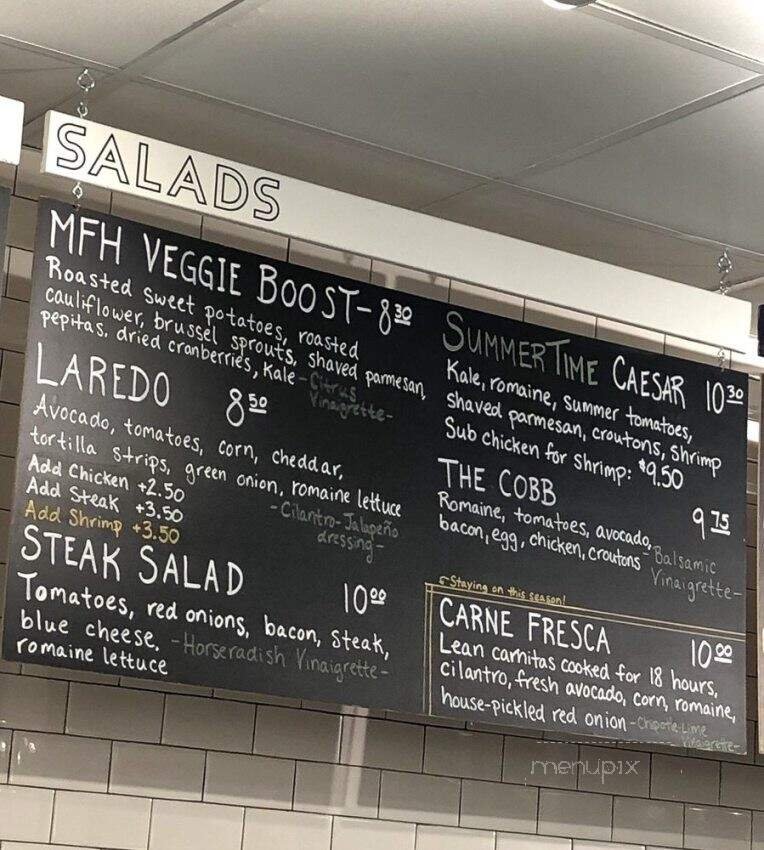 SALADS
MFH VEGGIE BOOST - 8 30
Roasted Sweet potatoes, roasted
cauliflower, brussel sprouts, shaved parmesan,
pepitas, dried cranberries, Kale - Citrus
Vinaigrette -
LAREDO 8 50
Avocado, tomatoes, corn, cheddar,
tortilla strips, green onion, romaine lettuce
- Cilantro-Jalapeño
dressing -
Add Chicken +2.50
Add Steak +3.50
Add Shrimp +3.50
STEAK SALAD 10 00
Tomatoes, red onions, bacon, Steak,
blue cheese. - Horseradish Vinaigrette -
romaine lettuce
SUMMERTIME CAESAR 10 30
Kale, romaine, Summer tomatoes,
Shaved parmesan, croutons, Shrimp
Sub chicken for Shrimp: $9.50
THE COBB 9 75
Romaine, tomatoes, avocado,
bacon, egg, chicken, croutons - Balsamic
Vinaigrette -
Staying on this season!
CARNE FRESCA 10 00
Lean carnitas cooked for 18 hours,
cilantro, fresh avocado, corn, romaine,
house-pickled red onion - Chipotle-Lime
Vinaigrette -
menupix